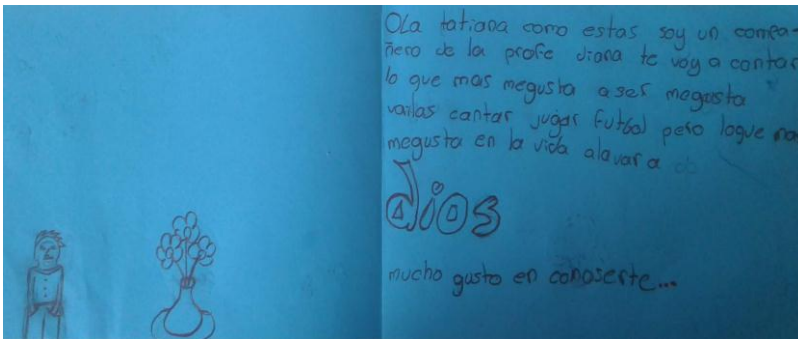 OLa tatiana como estas soy un compa-
ñero de la profe diana te voy a contar
lo que mas megusta aser megusta
vailas cantar jugar futbol pero loque ma
megusta en la vida alavar a
dios
mucho gusto en conoserte...